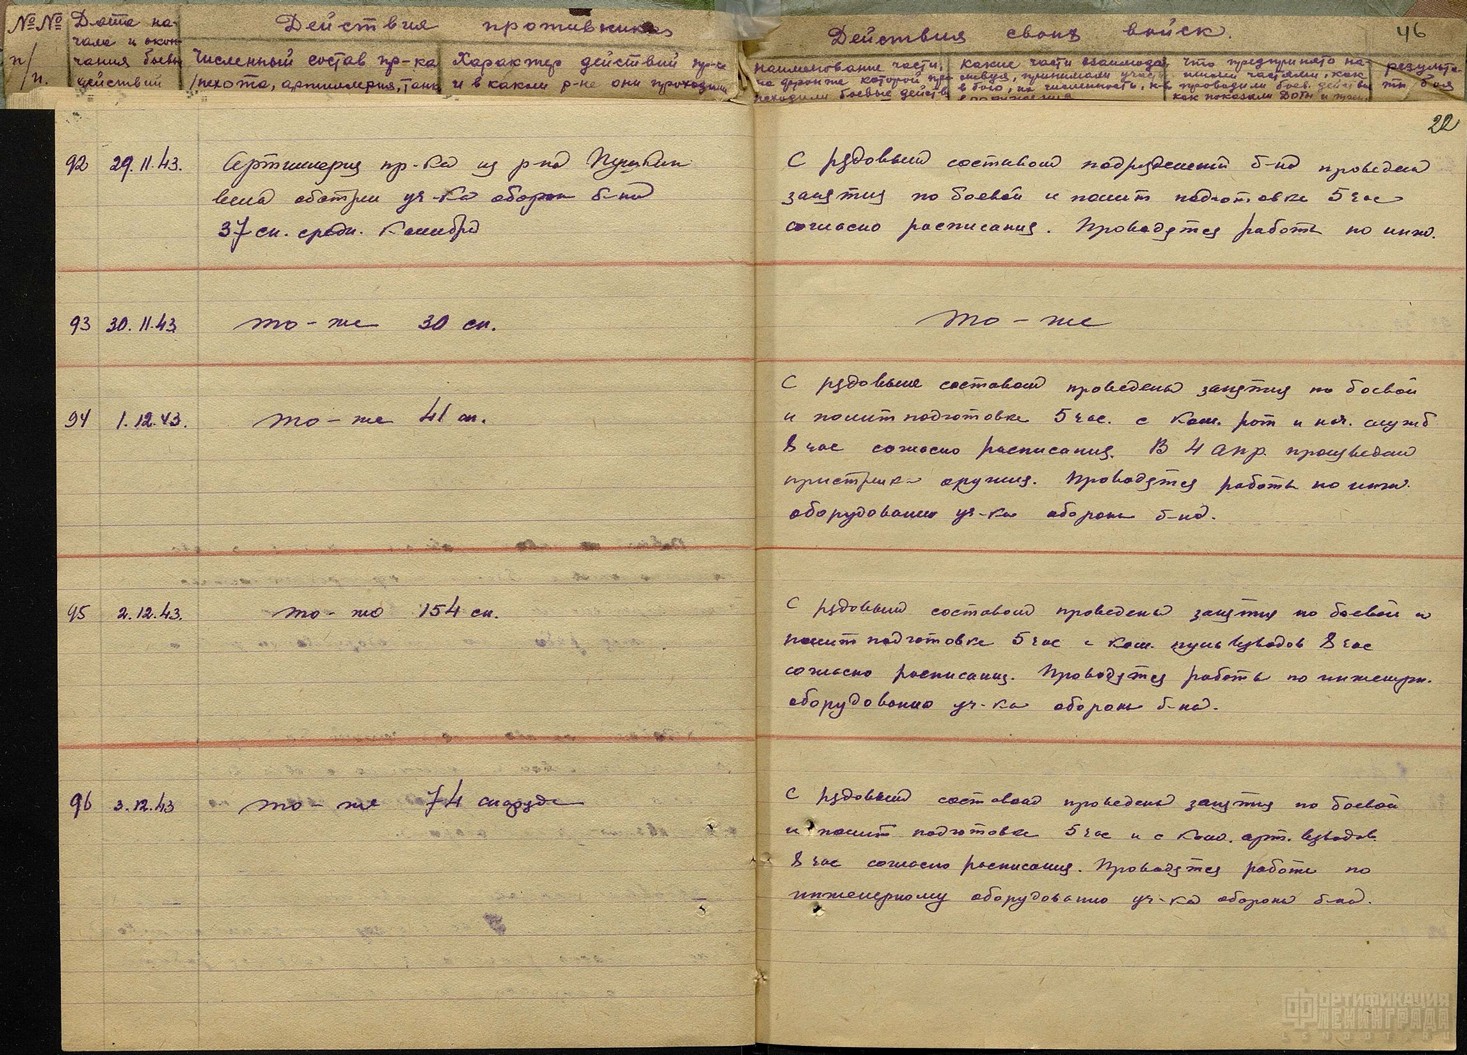 №№ п/п.
Дата на-
чала и окон-
чания боев.
действий
Действия противника
Численный состав пр-ка
/пехота, артиллерия, танк
Характер действий пр-ка
и в каком р-не они проходили
Действия своих войск.
46
наименование части,
на фронте которой про-
исходили боевые действ
какие части взаимодей
ствуя, принимали участ
в бою, их численность,
что предпринято на-
шими частями, как
проводили боев. действ
как показали ДОТы и
результа-
ты боя
22
92 29.11.43. Артиллерия пр-ка из р-на Пушкин
вела обстрел уч-ка оборон б-на
37 сн. средн. калибра
С рядовым составом подразделений б-на проведены
занятия по боевой и полит подготовке 5 час
согласно расписания. Проводятся работы по инж.
93 30.11.43 то-же 30 сн.
то-же
94 1.12.43. то-же 41 сн.
С рядовым составом проведены занятия по боевой
и полит подготовке 5 час. с ком. рот и нач. служб
8 час согласно расписания. В 4 апр. произведена
пристрелка оружия. Проводятся работы по инж.
оборудованию уч-ка обороны б-на.
95 2.12.43. то-же 154 сн.
С рядовым составом проведены занятия по боевой и
полит подготовке 5 час с ком. пульвзводов 8 час
согласно расписания. Проводятся работы по инженерн.
оборудованию уч-ка обороны б-на.
96 3.12.43 то-же 74 снаряда
С рядовым составом проведены занятия по боевой
и полит подготовке 5 час и с ком. арт. взводов
8 час согласно расписания. Проводятся работы по
инженерному оборудованию уч-ка обороны б-на.
ФОРТИФИКАЦИЯ
ЛЕНИНГРАДА